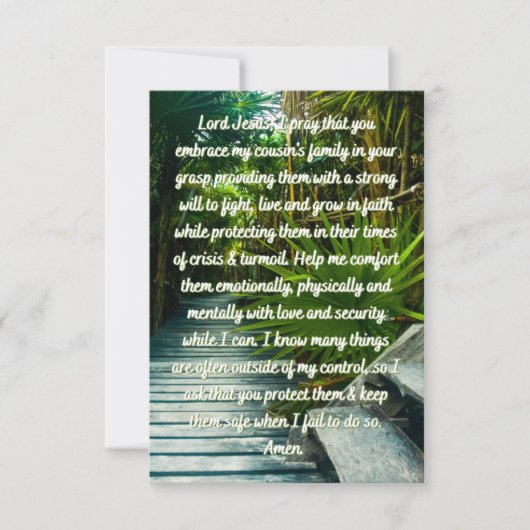 Lord Jesus, I pray that you
embrace my cousin's family in your
grasp providing them with a strong
will to fight, live and grow in faith
while protecting them in their times
of crisis & turmoil. Help me comfort
them emotionally, physically and
mentally with love and security
while I can. I know many things
are often outside of my control, so I
ask that you protect them & keep
them safe when I fail to do so.
Amen.